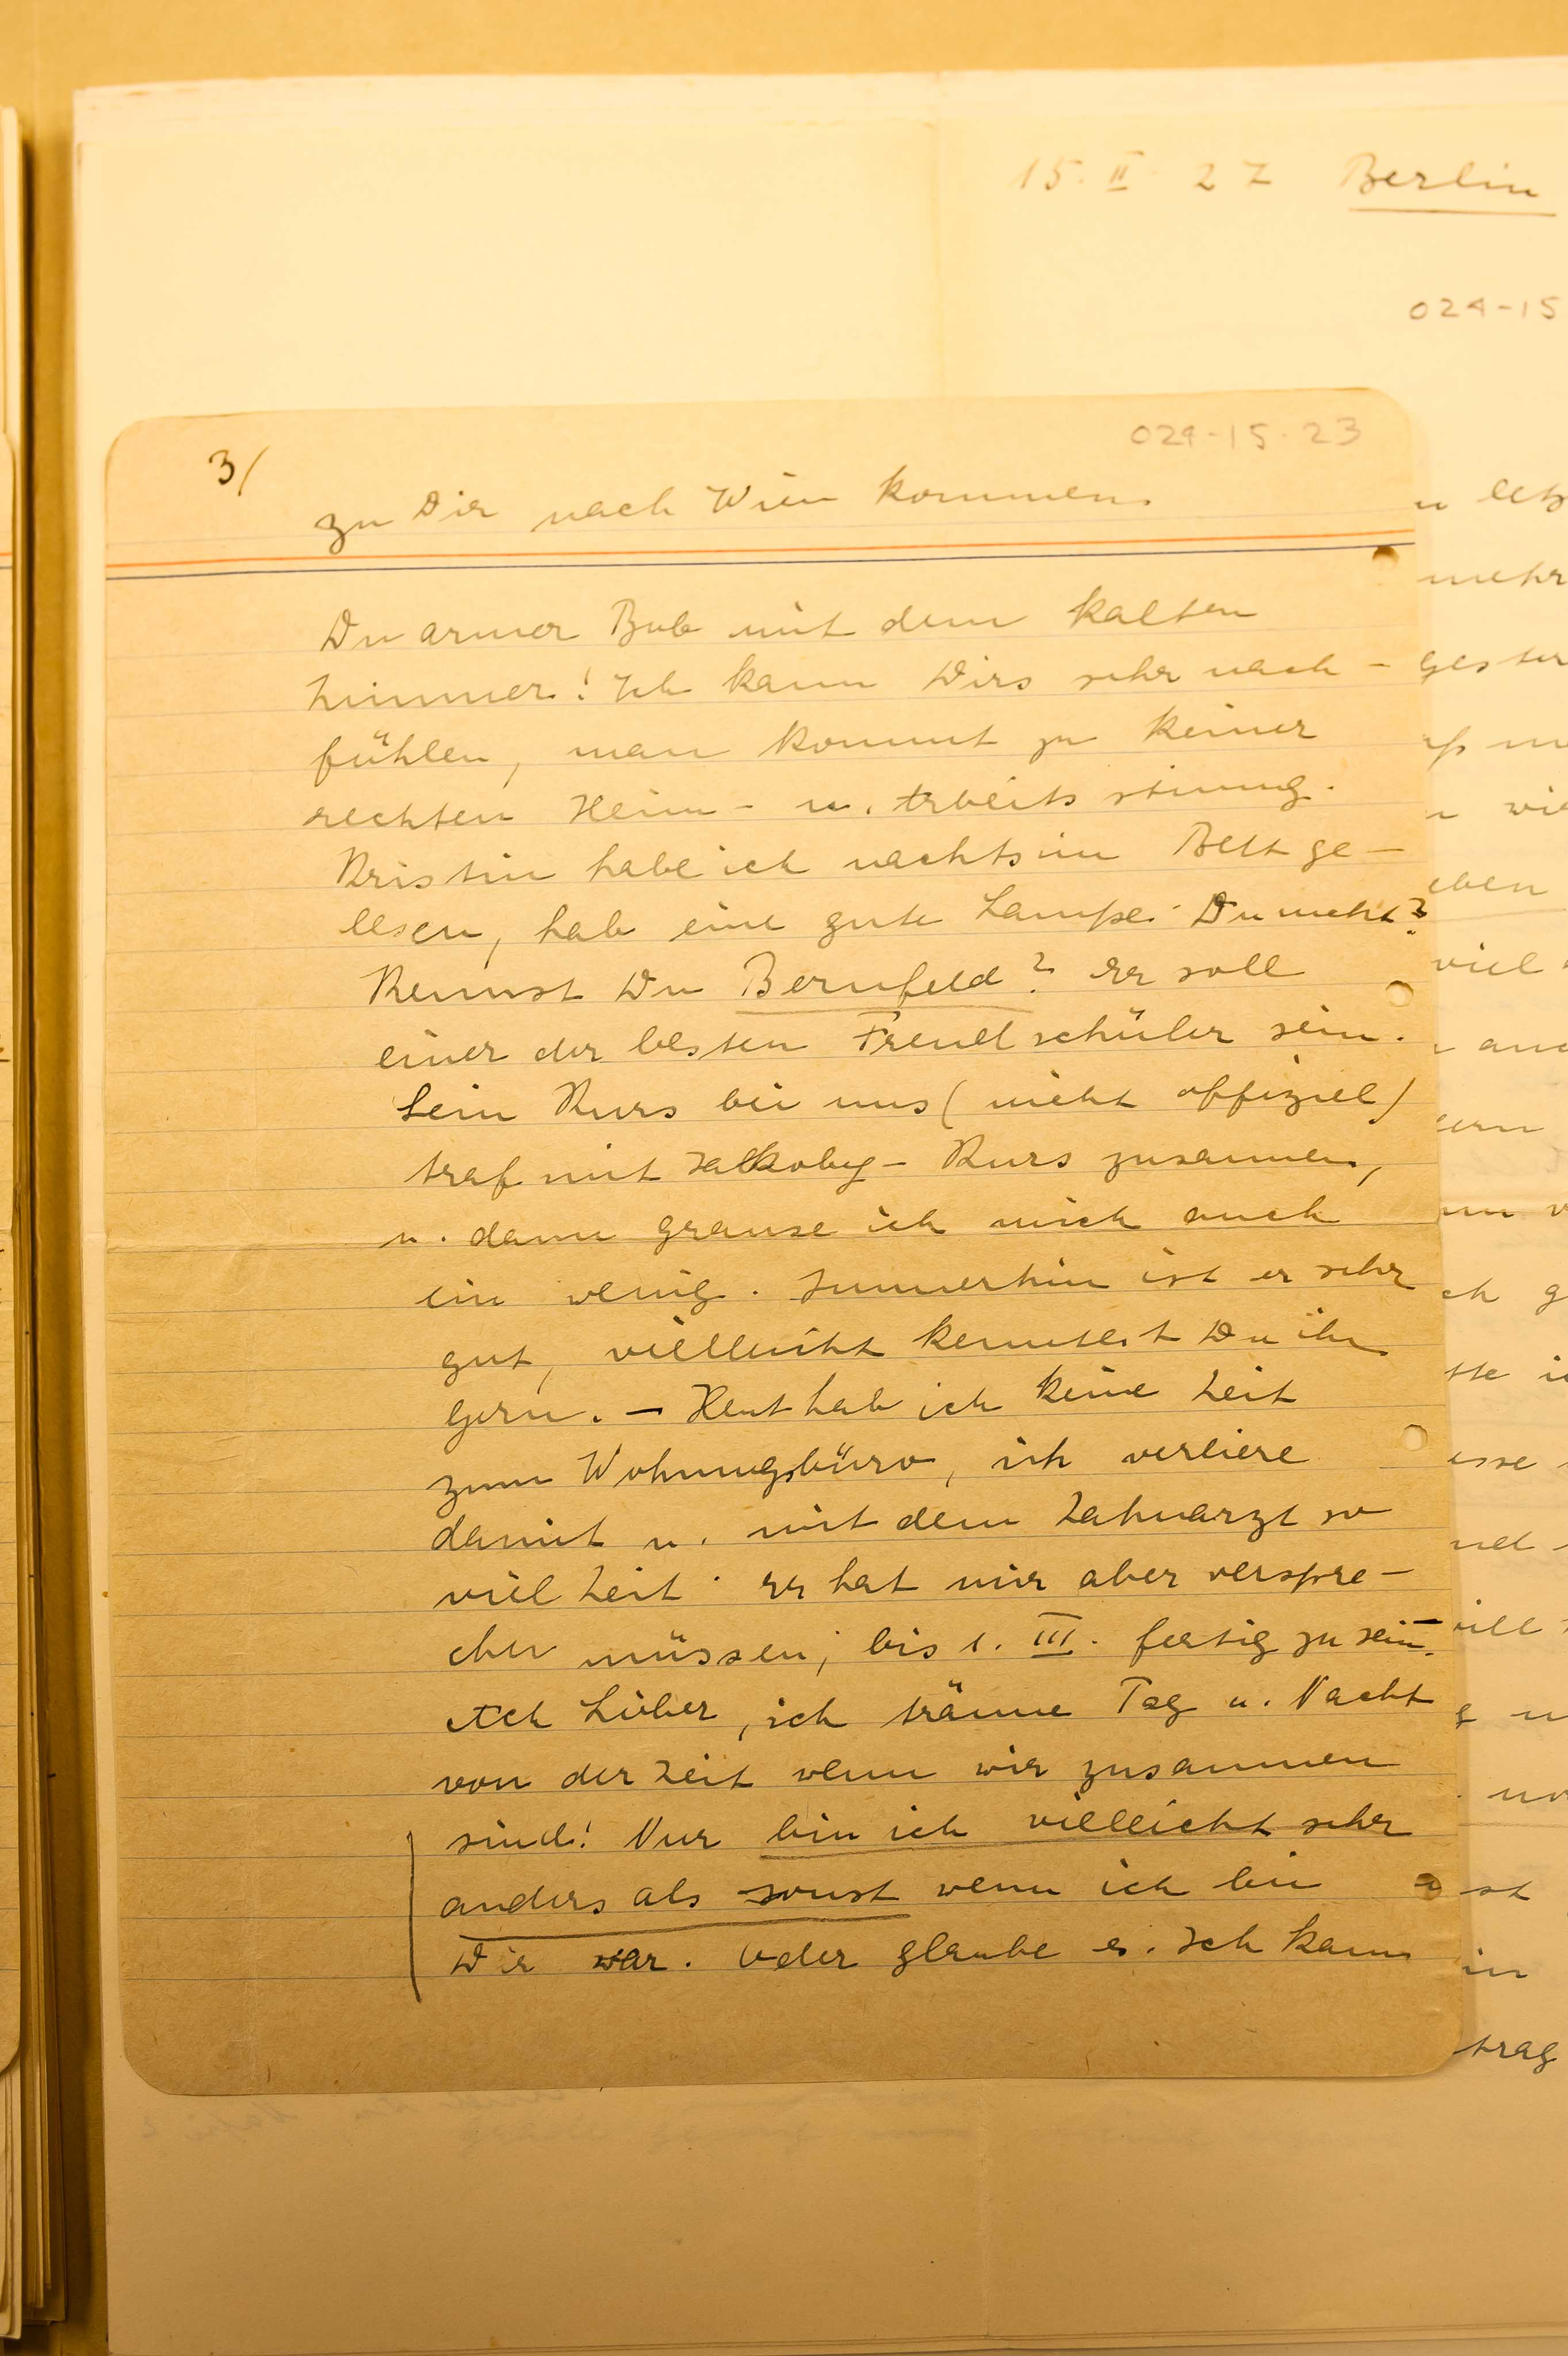 15. II 27 Berlin
024-15
029-15-23
3/
zu Dir nach Wien kommen.
Du armer Bub mit dem kalten
Zimmer! Ich kann Dirs sehr nach-
fühlen, man kommt zu keiner
rechten Heim- u. Arbeits stimmg.
Kristin habe ich nachts im Bett ge-
lesen, hab eine gute Lampe. Du nicht?
Kennst Du Bernfeld? Er soll
einer der besten Freudschüler sein.
Sein Kurs bei uns (nicht offiziel)
traf mit Kurs zusammen,
u. dann grause ich mich auch
ein wenig. Immerhin ist er sehr
gut, vielleicht kenntest Du ihn
gern. – Heut hab ich keine Zeit
zum Wohnungsbüro, ich verliere
damit u. mit dem Zahnarzt so
viel Zeit. Er hat mir aber verspre-
chen müssen, bis 1. III. fertig zu sein.
Ach Lieber, ich träume Tag u. Nacht
von der Zeit wenn wir zusammen
sind! Nur bin ich vielleicht sehr
anders als sonst wenn ich bei
Dir war. Oder glaube es. Ich kann
u letz
mehr
gester
wie
eben
viel
ch g
tte i
esse
ill
st
in
trag